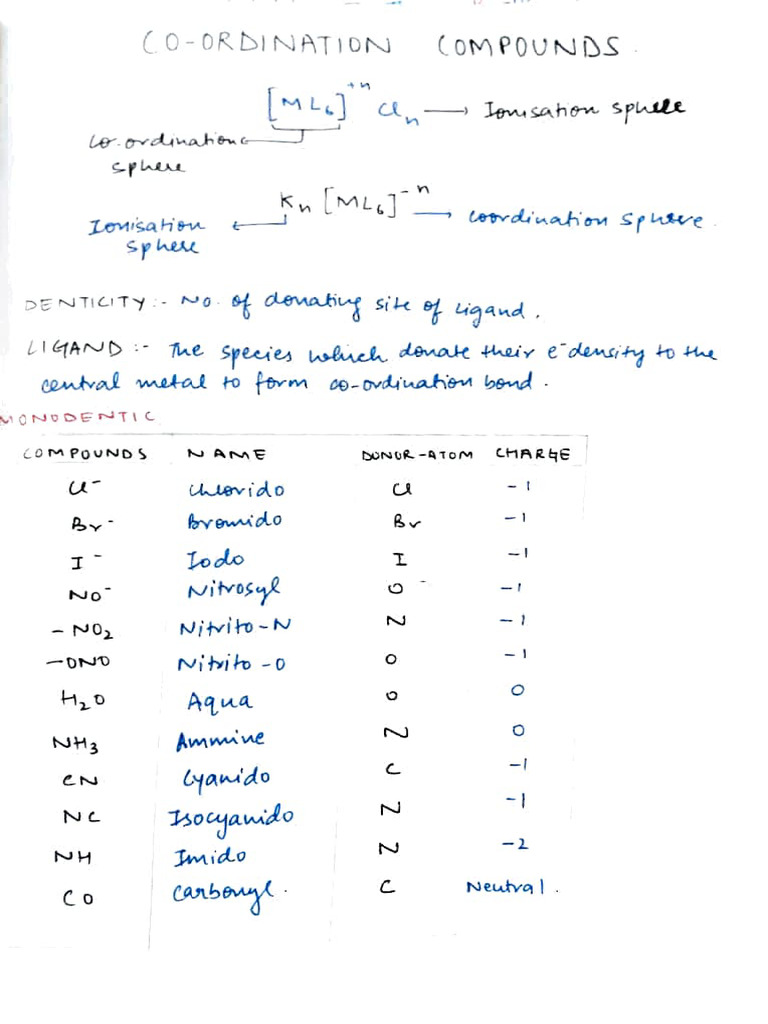 CO-ORDINATION COMPOUNDS.
[ML₆]⁺ⁿ Clₙ → Ionisation sphere
Co-ordination
sphere
Kₙ [ML₆]⁻ⁿ → coordination sphere.
Ionisation
sphere
DENTICITY :- No. of donating site of Ligand.
LIGAND :- The species which donate their e⁻ density to the
central metal to form co-ordination bond.
MONODENTIC
COMPOUNDS NAME DONOR-ATOM CHARGE
Cl⁻ Chlorido Cl -1
Br⁻ Bromido Br -1
I⁻ Iodo I -1
NO⁻ Nitrosyl O -1
-NO₂ Nitrito-N N -1
-ONO Nitrito-O O -1
H₂O Aqua O O
NH₃ Ammine N O
CN Cyanido C -1
NC Isocyanido N -1
NH Imido N -2
CO Carbonyl. C Neutral.